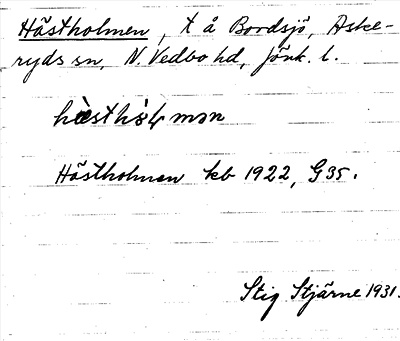 Hästholmen, t å Bordsjö, Aske-
ryds sn, N. Vedbo hd, Jönk. l.
Hästholmen kb 1922, G35.
Stig Stjärne 1931.